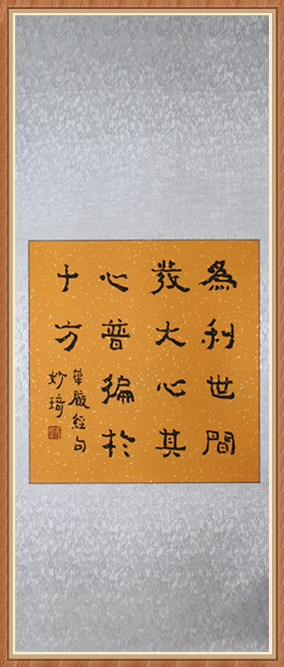 為利世間
發大心其
心普徧於
十方
華嚴經句
妙琦